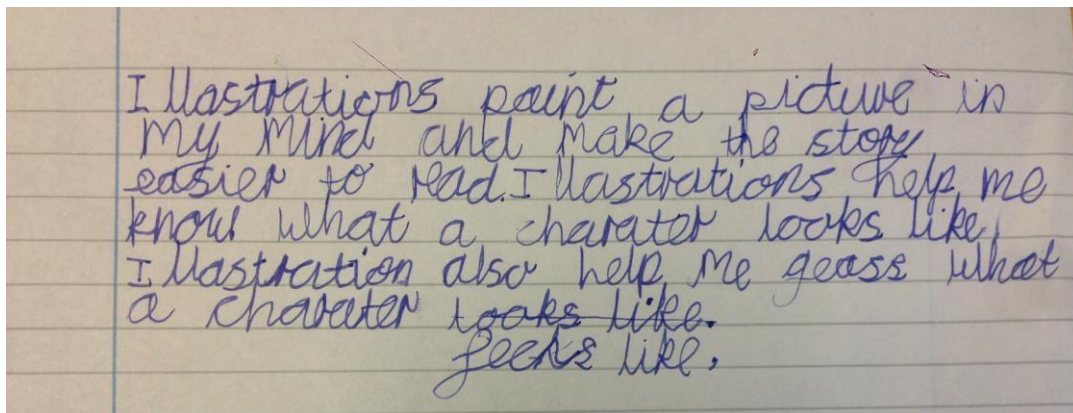 Illastrations paint a picture in
my mind and make the story
easier to read. Illastrations help me
know what a charater looks like,
Illastration also help me geass what
a charater looks like.
feels like,